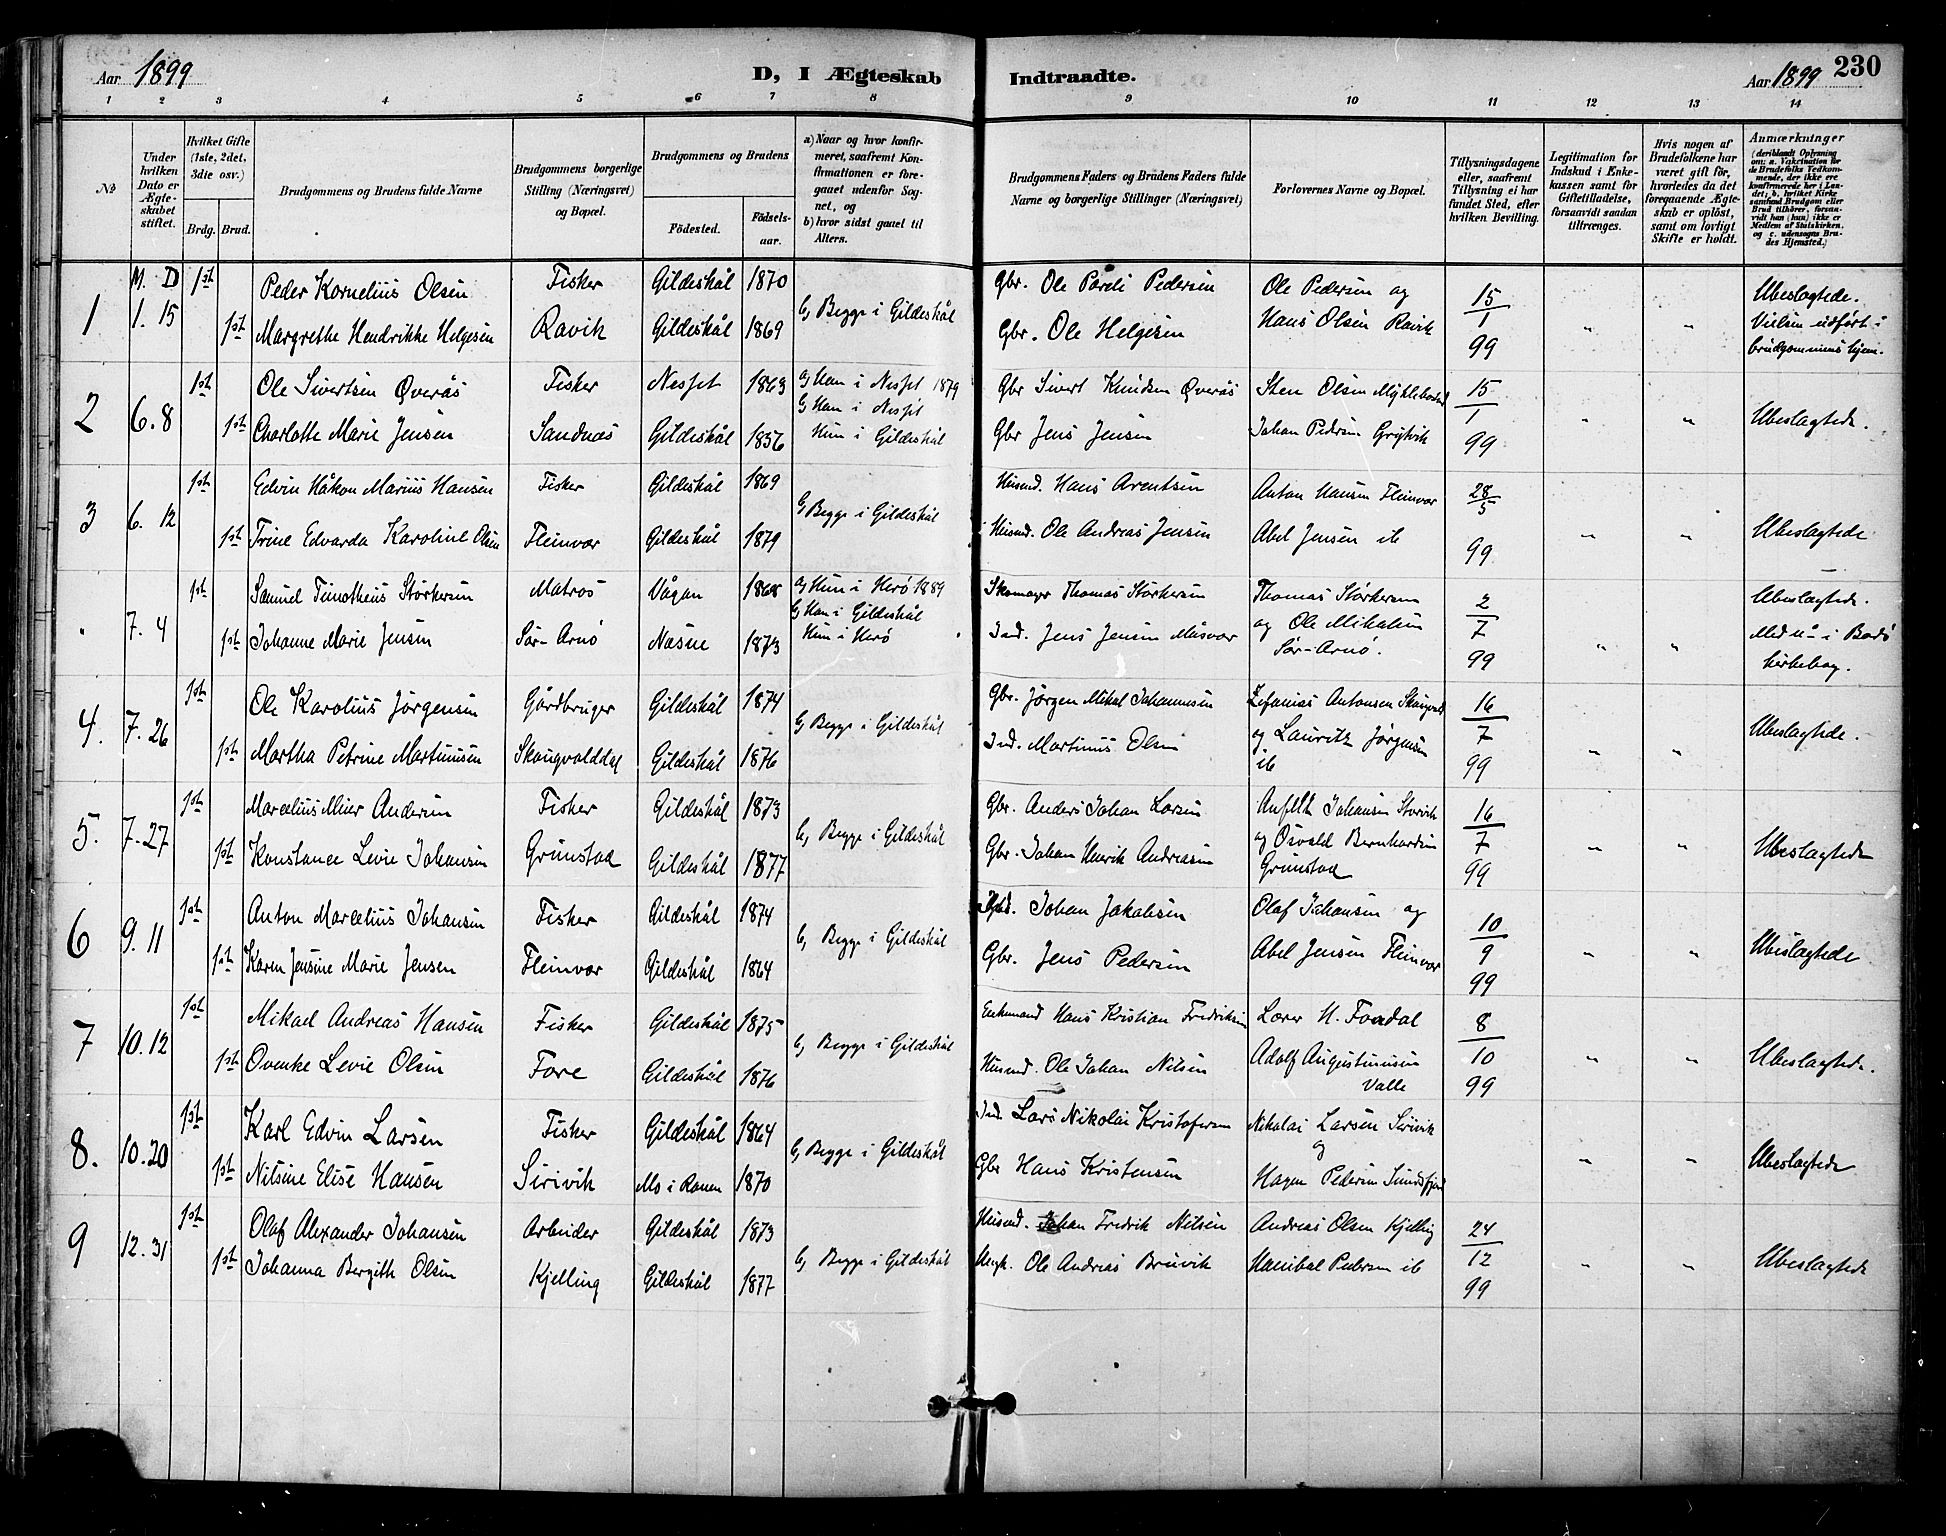 Aar 1899
D, I Ægteskab Indtraadte.
Aar 1899 230
1 2 3 4 5 6 7 8 9 10 11 12 13 14
No
Under hvilken Dato er Ægteskabet stiftet.
Hvilket Gifte (1ste, 2det, 3die osv.)
Brdg. Brud.
Brudgommens og Brudens fulde Navne
Brudgommens borgerlige Stilling (Næringsvei) og Bopæl.
Brudgommens og Brudens
Födested. Födselsaar.
a) Naar og hvor konfirmeret, saafremt Konfirmationen er foregaaet udenfor Sognet, og
b) hvor sidst gaaet til Alters.
Brudgommens Faders og Brudens Faders fulde Navne og borgerlige Stillinger (Næringsvei)
Forlovernes Navne og Bopæl.
Tillysningsdagene eller, saafremt Tillysning ei har fundet Sted, efter hvilken Bevilling.
Legitimation for Indskud i Enkekassen samt for Giftetilladelse, forsaavidt saadan tiltrænges.
Hvis nogen af Brudefolkene har været gift för, hvorledes da det foregaaende Ægteskab er oplöst, samt om lovligt Skifte er holdt.
Anmærkninger (deriblandt Oplysning om: a. Vakcination for de Brudefolks Vedkommende, der ikke ere konfirmerede her i Landet; b. hvilket Kirkesamfund Brudgom eller Brud tilhörer, forsaavidt han (hun) ikke er Medlem af Statskirken, og c. udensogns Brudes Hjemsted.)
M. D
1 1. 15 1ste Peder Kornelius Olsen Fisker Gildeskål 1870 b, Begge i Gildeskål Gbr. Ole Pareli Pedersen Ole Pedersen og 15/1 99 " " Ubeslægtede. Vielsen udført i brudgommens hjem.
1ste Margrethe Hendrikke Helgesen Ravik Gildeskål 1869 Gbr. Ole Helgesen Hans Olsen Ravik
2 6. 8 1ste Ole Sivertsen Överås Fisker Nesset 1863 a, Ham i Nesset 1879 b, Ham i Nesset Gbr Sivert Knudsen Överås Sten Olsen Myklebostad 15/1 99 " " Ubeslægtede.
1ste Charlotte Marie Jensen Sandnæs Gildeskål 1856 Hun i Gildeskål Gbr Jens Jensen Johan Pedersen Grytvik
3 6. 12 1ste Edvin Håkon Marius Hansen Fisker Gildeskål 1869 b, Begge i Gildeskål Husmd. Hans Arentsen Anton Hansen Fleinvær 28/5 99 " " Ubeslægtede
1ste Trine Edvarda Karoline Olsen Fleinvær Gildeskål 1879 Husmd. Ole Andreas Jensen Abel Jensen ib
" 7. 4 1ste Samuel Timotheus Störkersen Matros Vågan 1868 a, Hun i Herö 1889 b, Ham i Gildeskål Skomager Thomas Störkersen Thomas Störkersen og Ole Mikalsen 2/7 99 " " Ubeslægtede. Med no i Bodö kirkebog.
1ste Johanne Marie Jensen Sör-Arnö Næsne 1873 Hun i Herö Ind. Jens Jensen Måsvær Sör-Arnö.
4. 7. 26 1ste Ole Karolius Jörgensen Gårdbruger Gildeskål 1874 b, Begge i Gildeskål Gbr. Jörgen Mikal Johannesen Zefanias Antonsen 16/7 99 " " Ubeslægtede.
1ste Martha Petrine Martinusen Skaugvolddal Gildeskål 1876 Ind. Martinus Olsen og Lauritz Jörgensen ib
5. 7. 27 1ste Marcelius Meier Andersen Fisker Gildeskål 1873 b, Begge i Gildeskål Gbr. Anders Johan Larsen Anfelt Johansen Storvik 16/7 99 " " Ubeslægtede
1ste Konstance Levie Johansen Grimstad Gildeskål 1877 Gbr. Johan Henrik Andreasen og Osvald Bernhardsen Grimstad
6 9. 11 1ste Anton Marcelius Johansen Fisker Gildeskål 1874 b, Begge i Gildeskål Johan Jakobsen Olaf Johansen og 10/9 99 " " Ubeslægtede
1ste Karen Jensine Marie Jensen Fleinvær Gildeskål 1864 Gbr. Jens Pedersen Abel Jensen Fleinvær
7 10. 12 1ste Mikael Andreas Hansen Fisker Gildeskål 1875 b, Begge i Gildeskål Enkemand Hans Kristian Fredriksen Lærer H. Fondal 8/10 99 " " Ubeslægtede.
1ste Ovenke Levie Olsen Fore Gildeskål 1876 Husmd. Ole Johan Nilsen Adolf Augustinusen Valle
8. 10. 20 1ste Karl Edvin Larsen Fisker Gildeskål 1864 b, Begge i Gildeskål Ind. Lars Nikolai Kristofersen Nikolai Larsen Sirivik og " " Ubeslægtede
1ste Nilsine Elise Hansen Sirivik Mo i Ranen 1870 Gbr Hans Kristensen Hagen Pedersen Sundsfjord
9 12. 31 1ste Olaf Alexander Johansen Arbeider Gildeskål 1873 b, Begge i Gildeskål Husmd. Johan Fredrik Nilsen Andreas Olsen Kjelling 24/12 99 " " Ubeslægtede
1ste Johanna Bergith Olsen Kjelling Gildeskål 1877 Ole Andreas Bruvik Hanibal Pedersen ib